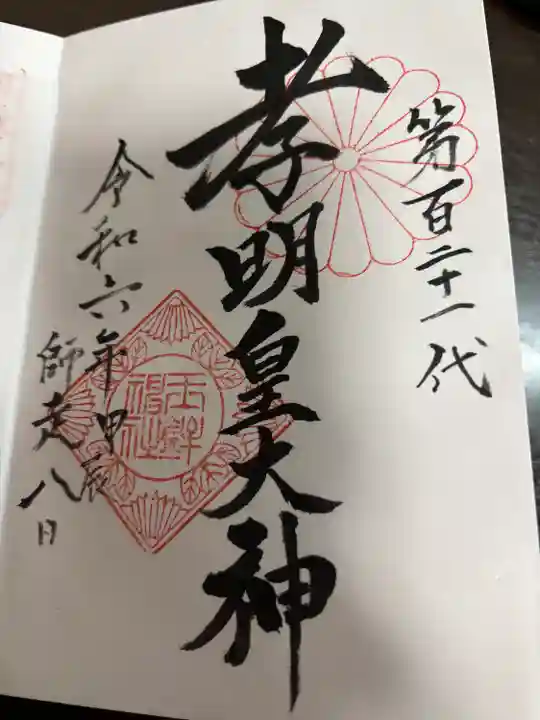 第百二十一代
孝明皇大神
令和六年甲辰
師走八日
玉鉾
神社